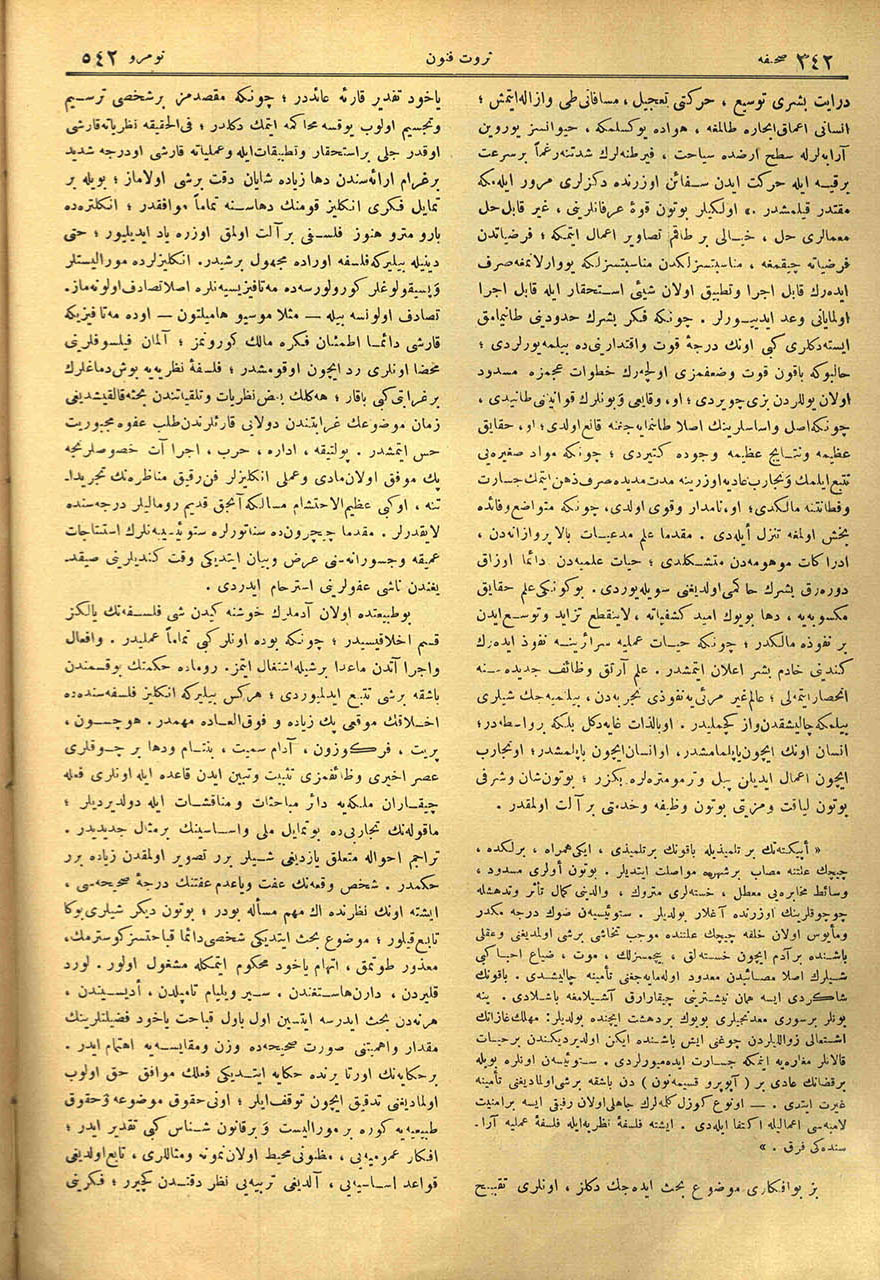 ۳٤۲ صحیفه
ثروت فنون
نومرو ٥٤۲
درایت بشری توسیع ، حرکتی تعجیل ، مسافاتی طی وازاله ایتمش ؛
انسانی اعماق ابحاره طالمغه ، هواده یوکسلمکه ، حیوانسز یورو ین
آرابه لرله سطح ارضده سیاحت ، فیرطنه لرك شدتنه رغماً بر سرعت
برقیه ایله حرکت ایدن سفائن اوزرنده دکزلری مرور ایله مکه
مقتدر قیلمشدر .» اولکیلر بوتون قوۀ عرفانلرینی ، غیر قابل حل
معمالری حل ، خیالی بر طاقم تصاویر اعمال ایتمکه ؛ فرضیاتدن
فرضیاته چیقمغه ، مناسبتسزلکدن مناسبتسزلکه یووارلانمغه صرف
ایده رك قابل اجرا وتطبیق اولان شیئی استحقار ایله قابل اجرا
اولمایانی وعد ایدییورلر . چونکه فکر بشرك حدودینی طانیمامق
ایسته دکلری کبی اونك درجۀ قوت واقتدارینی ده بیلمه یورلردی ؛
حالبوکه باقون قوت وضعفمزی اولچه رك خطوات عجزمزه مسدود
اولان یوللردن بزی چویردی ؛ او ، وقایعی وبونلرك قوانینی طانیدی ،
چونکه اصل واساسلرینك اصلا طانمایه جغنه قانع اولدی ؛ او ، حقایق
عظیمه ونتایج عظیمه وجوده کتیردی ؛ چونکه مواد صغیره یی
تتبع ایلمك وتجارب عادیه اوزرینه مدت مدیده صرف ذهن ایتمك جسارت
وفطانتنه مالکدی ؛ او ، نامدار وقوی اولدی ، چونکه متواضع وفائده
بخش اولمغه تنزل أیله دی . مقدما علم مدعیات بالاپروازانه دن ،
ادراکات موهومه دن متشکلدی ؛ حیات علمیه دن دائما اوزاق
دوره رق بشرك حاکمی اولدیغنی سویله یوردی . بوکونکی علم حقایق
مکسوبه یه ، دها بویوك امید کشفیاته ، لاینقطع تزاید وتوسع ایدن
بر نفوذه مالکدر ؛ چونکه حیات عملیه سرائرینه نفوذ ایده رك
کندینی خادم بشر اعلان ایتمشدر . علم آرتق وظائف جدیده سنه
انحصار ایتملی ؛ عالم غیر مرئی یه نفوذی تجربه دن ، بیلمیه جك شیلری
بیلمکه چالیشمقدن واز کچملیدر . او بالذات غایه دکل بلکه بر واسطه در ؛
انسان اونك ایچون یاپیلمامشدر ، او انسان ایچون یاپلمشدر ؛ او تجارب
ایچون اعمال ایدیلن پیل وترمومتره لره بکزر ؛ بوتون شان وشرفی
بوتون لیاقت ومزیتی بوتون وظیفه وخدمتی بر آلت اولمقدر .
« أپیکته نك بر تلمیذیله باقونك بر تلمیذی ، ایکی همراه ، برلکده ،
چیچك علتنه مصاب بر شهره مواصلت ایتدیلر . بوتون أولری مسدود ،
وسائط مخابره یی معطل ، خسته لری متروك ، والدینی کمال تأثر وتدهشله
چوجوقلرینك اوزرنده آغلار بولدیلر . ستوئیسه ن صوك درجه مکدر
ومأیوس اولان خلقه چیچك علتنده موجب تحاشی برشی اولمدیغنی وعقلی
باشنده بر آدم ایچون خسته لق ، بیچمسزلك ، موت ، ضیاع احبا کی
شیلرك اصلا مصائبدن معدود اوله مایه جغنی تأمینه چالیشدی . باقونك
شاکردی ایسه همان نیشترینی چیقارارق آشیلامغه باشلادی . ینه
بونلر بر سوری معدنجیلری بویوك بر دهشت ایچنده بولدیلر : مهلك غازاتك
اشتعالی زواللیلردن چوغنی ایش باشنده ایکن اولدیردیکندن برحیات
قالانلر مغاره یه ایتمکه جسارت ایده میورلردی . ستوئیسه ن اونلره بویله
برقضانك عادی بر ( آپوپرو قسیمه نون ) دن باشقه برشی اولمادیغنی تأمینه
غیرت ایتدی . — اونوع کوزل کله لرك جاهلی اولان رفیقی ایسه بر امنیت
لامبه سی اعمالیله اکتفا ایله دی . ایشته فلسفۀ نظریه ایله فلسفۀ عملیه آرا-
سنده کی فرق . »
بز بو افکاری موضوع بحث ایده جك دکلز ، اونلری تقبیح
یاخود تقدیر قارئه عائددر ؛ چونکه مقصدمز بر شخصی ترسیم
وتجسیم اولوب یوقسه محاکمه ایتمك دکلدر ؛ فی الحقیقه نظریاته قارشی
اوقدر جلی بر استحقار وتطبیقات ایله وعملیاته قارشی اودرجه شدید
بر غرام ارائه سندن دها زیاده شایان دقت برشی اولاماز ؛ بویله بر
تمایل فکری انکلیز قومنك دهاسنه تماماً موافقدر ؛ انکلتره ده
بارومترو هنوز فلسفی بر آلت اولمق اوزره یاد ایدیلیور ؛ حتی
دینیله بیلیرکه فلسفه اوراده مجهول برشیدر . انکلیزلرده مورالیستلر
وپسیقولوغلر کورولورسه ده مه تافیزیسیه نلره اصلا تصادف اولونه ماز .
تصادف اولونسه بیله — مثلا موسیو هامیلتون — اوده مه تافیزیکه
قارشی دائما اطمئنان فکره مالك کورونمز ؛ آلمان فیلسوفلرینی
محضا اونلری رد ایچون اوقومشدر ؛ فلسفۀ نظریه یه بوش دماغلرك
بر غرابتی کبی باقار ؛ هه کلك بعض نظریات وتلقیاتندن بحثه قالقیشدیغی
زمان موضوعك غرابتندن دولایی قارئلرندن طلب عفوه مجبوریت
حس ایتمشدر . پولتیقه ، اداره ، حرب ، اجرا آت خصوصلرنجه
پك موفق اولان مادی وعملی انکلیزلر فن رقیق مناظره نك تجریدا-
تنه ، اوکی عظیم الاحتشام مسالکه آنجق قدیم رومالیلر درجه سنده
لایقدرلر . مقدما چیچرون ده سناتورلره ستوئیسیه نلرك استنتاجات
عمیقه وجسورانه سنی عرض وبیان ایتدیکی وقت کندیلرینی صیقد-
یغندن ناشی عفولرینی استرحام ایدردی .
بو طبیعتده اولان آدملرك خوشنه کیدن شی فلسفه نك یالکز
قسم اخلاقیسیدر ؛ چونکه بوده اونلر کبی تماماً عملیدر . وافعال
واجرا آتدن ماعدا برشیله اشتغال ایتمز . روماده حکمتك بوقسمندن
باشقه برشی تتبع ایدلمیوردی ؛ هرکس بیلیرکه انکلیز فلسفه سنده ده
اخلاقك موقعی پك زیاده و فوق العاده مهمدر . هوچسون ،
پریت ، فرگوزون ، آدام سمیت ، بنتام ودها بر چوقلری
عصر اخیری وظائفمزی تثبیت وتبیین ایدن قاعده ایله اونلری فعله
چیقاران ملکه یه دائر مباحثات ومناقشات ایله دولدیردیلر ؛
ماقوله نك تجاربی ده بوتمایل ملی واساسینك بر مثال جدیدیدر .
تراجم احواله متعلق یازدیغی شیلر برر تصویر اولمقدن زیاده برر
حکمدر . شخص وقعه نك عفت ویاعدم عفتنك درجۀ صحیحه سی ،
ایشته اونك نظرنده اك مهم مسأله بودر ؛ بوتون دیکر شیلری بوکا
تابع قیلور ؛ موضوع بحث ایتدیکی شخصی دائما قباحتسز کوسترمك ،
معذور طوتمق ، اتهام یاخود محکوم ایتمکله مشغول اولور . لورد
قلیردن ، دارن هاستغندن ، سیر ویلیام تامپلدن ، أدیسندن ،
هرنه دن بحث ایدرسه ایتسین اول باول قباحت یاخود فضیلتلرینك
مقدار واهمیتنی صورت صحیحه ده وزن ومقایسه یه اهتمام ایدر .
بر حکایه نك اورتا یرنده حکایه ایتدیکی فعلك موافق حق اولوب
اولمادیغنی تدقیق ایچون توقف ایلر ؛ اونی حقوق موضوعه وحقوق
طبیعیه یه کوره بر مورالیست وبر قانون شناس کبی تقدیر ایدر ؛
افکار عمومیه یی ، مظنونی محیط اولان نمونه ومثاللری ، تابع اولدیغی
قواعد اساسیه یی ، آلدیغی تربیه یی نظر دقتدن کچیرر ؛ فکرینی